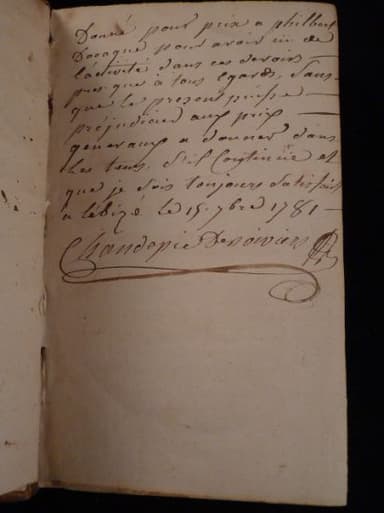 Donné pour prix a philbert
Docagne pour avoir eu de
Lactivité dans ces devoirs
presque à tous Egards, Sans
que le present puisse
préjudicier aux prix
generaux a donner dans
Les tems. S'il Continüe et
que je sois toujours Satisfait
a le 15. 7bre 1781